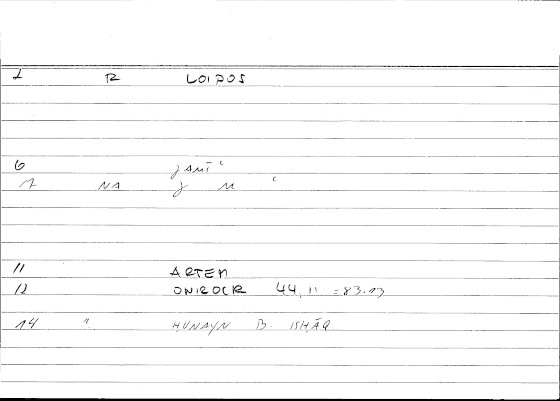 1 R LOIDOS
6 jamīʿ
7 NA j m ʿ
11 ARTEM
12 ONIROCR 44,11 = 83.13
14 " HUNAYN B. ISHĀQ